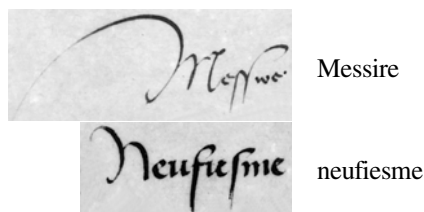 Messire Messire
Neufiesme neufiesme